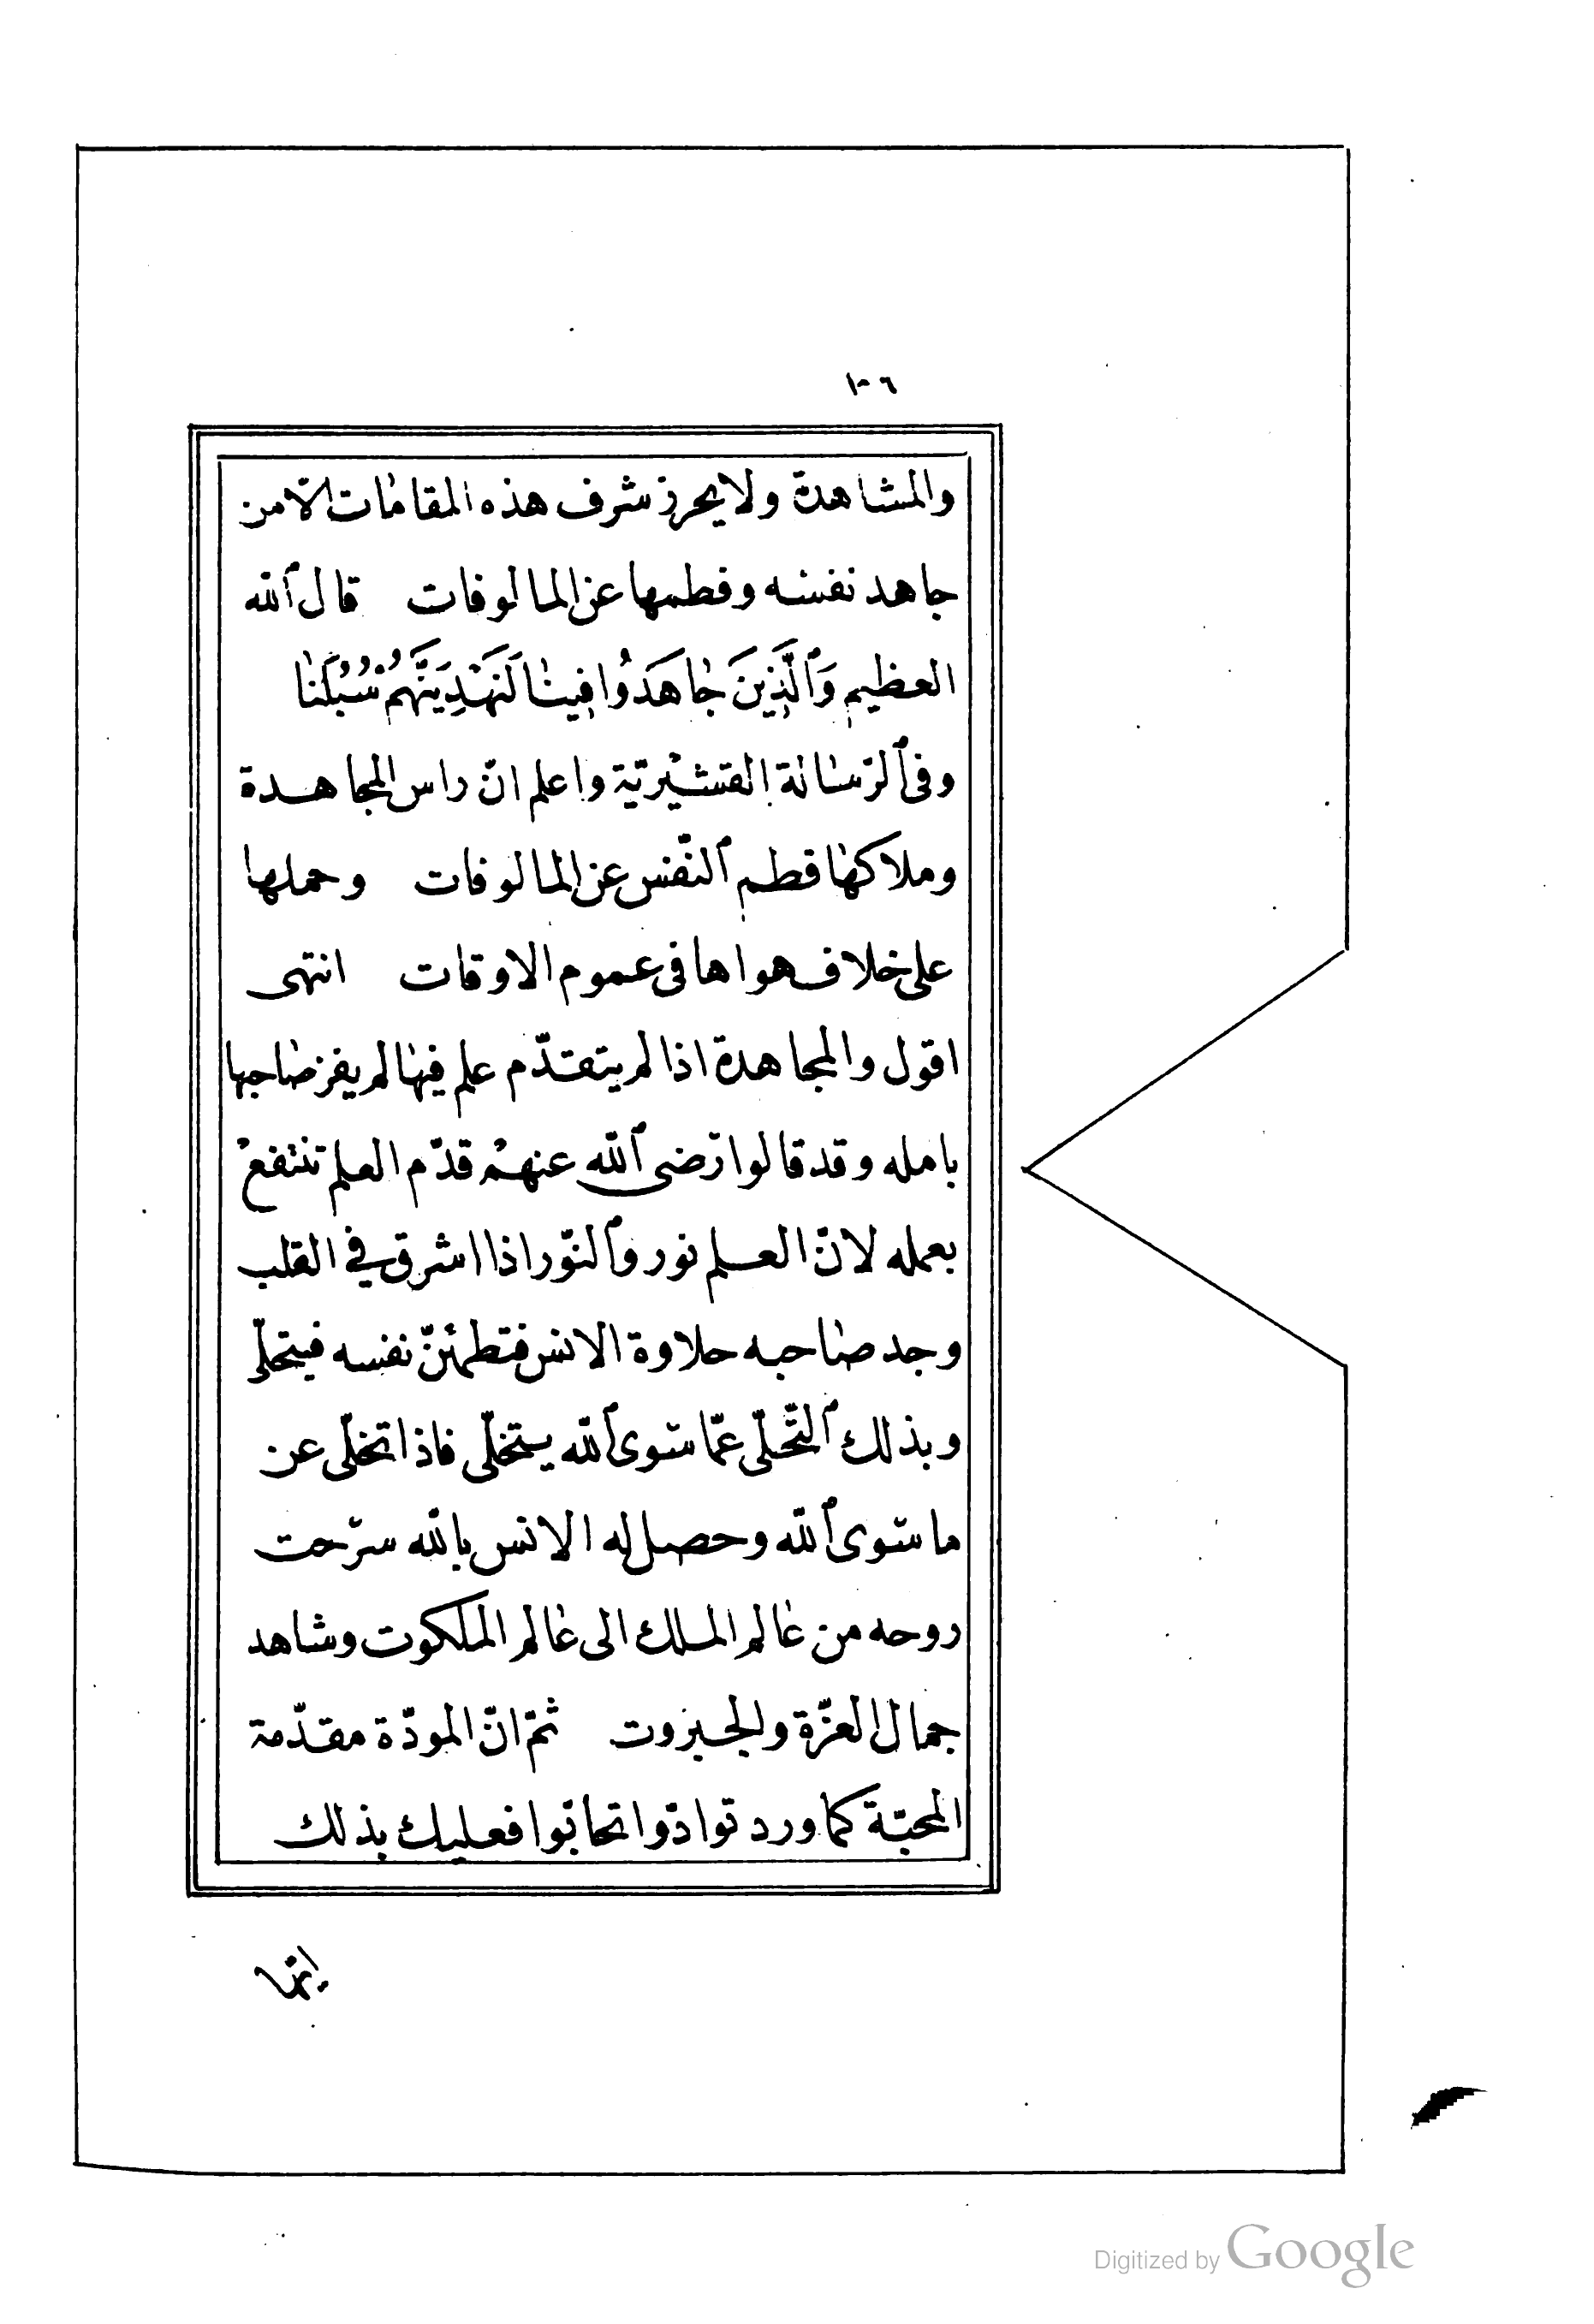 ١٠٦
والمشاهدة ولا يحرز شرف هذه المقامات الّا من
جاهد نفسه وفطمها عن المالوفات قال ٱللّه
العظيم وَٱلَّذِينَ جَاهَدُوا فِينَا لَنَهْدِيَنَّهُمْ سُبُلَنَا
وفى ٱلرّسالة القشيريّة واعلم انّ راس المجاهدة
وملاكها فطم ٱلنّفس عن المالوفات وحملها
على خلاف هواها فى عموم الاوقات انتهى
اقول والمجاهدة اذا لم يتقدّم علم فيها لم يفز صاحبها
بامله وقد قالوا رضى ٱللّه عنهم قدّم العلم تنتفع
بعمله لانّ العلم نور وٱلنّور اذا اشرق في القلب
وجد صاحبه حلاوة الانس فتطمئنّ نفسه فيتحلّى
وبذلك ٱلتّحلّى عمّا سوى ٱللّه يستخلّى فاذا تخلّى عن
ما سوى ٱللّه وحصل له الانس باللّه سرّحت
روحه من عالم الملك الى عالم الملكوت وشاهد
جمال العزّة والجبروت ثمّ انّ المودّة مقدّمة
المحبّة كما ورد توادّوا تحابّوا فعليك بذلك